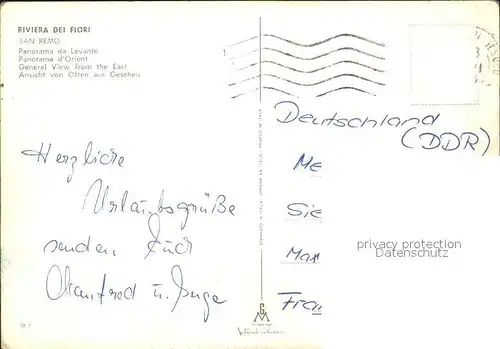 RIVIERA DEI FIORI
SAN REMO
Panorama da Levante
Panorama d'Orient
General View from the East
Ansicht von Osten aus Gesehen
Herzliche
Urlaubsgrüße
senden Euch
Manfred u. Inge
Deutschland
(DDR)
Me
Sie
Max
Fra
privacy protection
Datenschutz